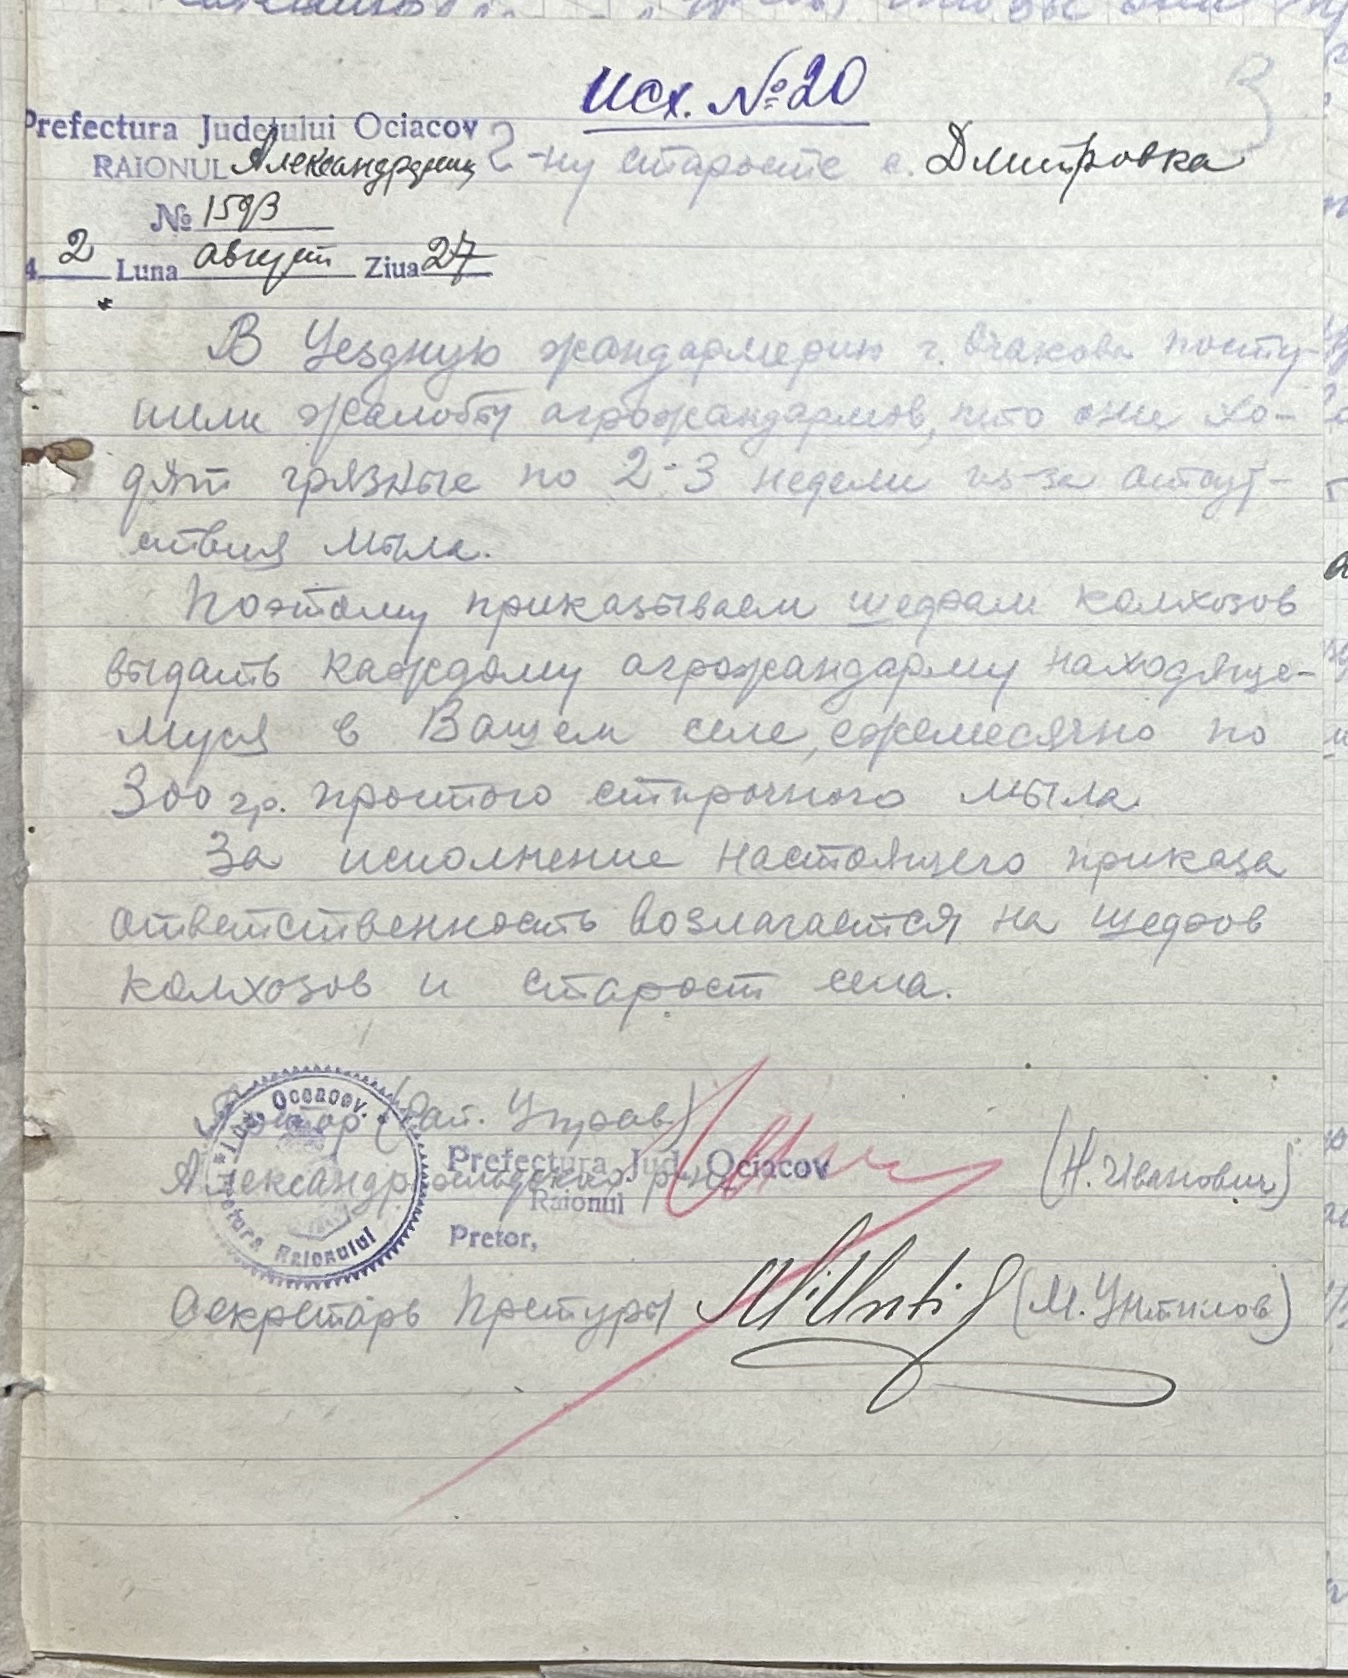 Исх. №20
3
Prefectura Județului Ociacov
RAIONUL
Г-ну старосте с. Дмитровка
№ 1593
4 2 Luna август Ziua 27
В Уездную жандармерию г. Очакова посту-
пили жалобы агрожандармов, что они хо-
дят грязные по 2-3 недели из-за отсут-
ствия мыла.
Поэтому приказываем шефам колхозов
выдать каждому агрожандарму находяще-
муся в Вашем селе, ежемесячно по
300 гр. простого стирочного мыла.
За исполнение настоящего приказа
ответственность возлагается на шефов
колхозов и старост села.
Претор (Рай. Управ)
Prefectura Jud. Ociacov
Raionul
Pretor,
(Н. Иванович)
Секретарь Претуры (М. Унтилов)